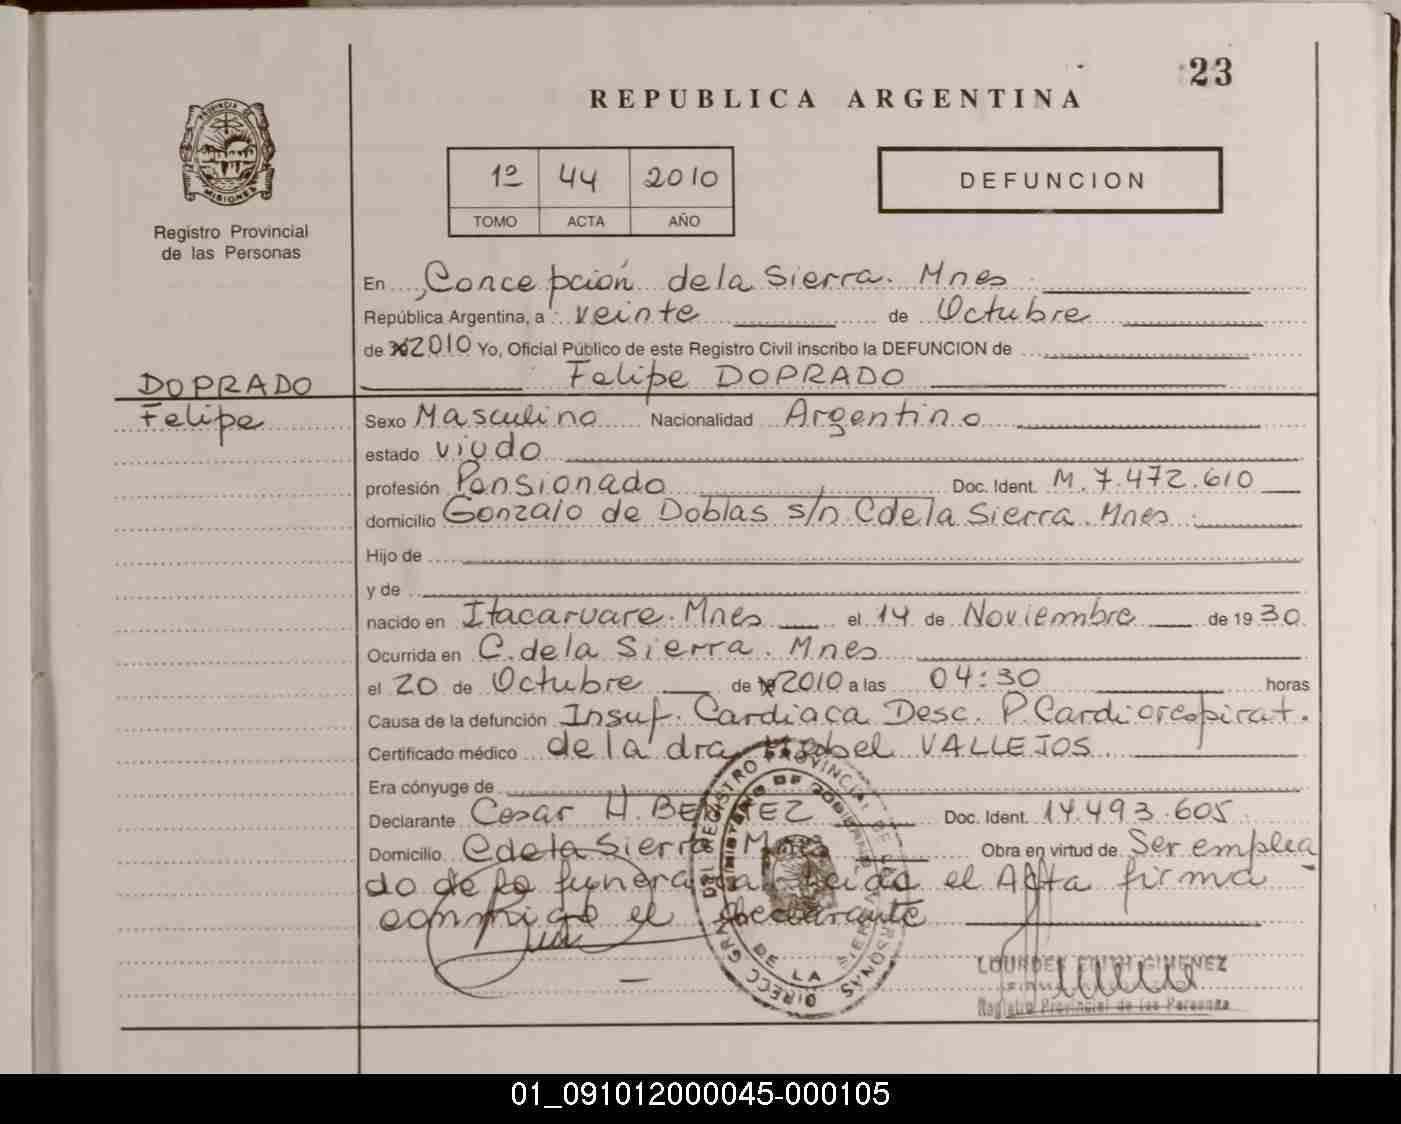 23
REPUBLICA ARGENTINA
PROVINCIA DE
MISIONES
Registro Provincial
de las Personas
1º 44 2010
TOMO ACTA AÑO
DEFUNCION
En Concepción de la Sierra. Mnes
República Argentina, a veinte de Octubre
de 2010 Yo, Oficial Público de este Registro Civil inscribo la DEFUNCION de
DOPRADO
Felipe
Felipe DOPRADO
Sexo Masculino Nacionalidad Argentino
estado viudo
profesión Pensionado Doc. Ident. M. 7.472.610
domicilio Gonzalo de Doblas s/n C de la Sierra. Mnes
Hijo de
y de
nacido en Itacaruare. Mnes el 14 de Noviembre de 1930
Ocurrida en C. de la Sierra. Mnes
el 20 de Octubre de 2010 a las 04:30 horas
Causa de la defunción Insuf. Cardiaca Desc. P. Cardiorespirat.
Certificado médico de la dra Mabel VALLEJOS
Era cónyuge de
Declarante Cesar H. BENITEZ Doc. Ident. 14.493.605
Domicilio C de la Sierra Mnes Obra en virtud de Ser emplea
do de la funeraria Leida el Acta firma
conmigo el declarante
LOURDES EDITH GIMENEZ
Registro Provincial de las Personas
01_091012000045-000105